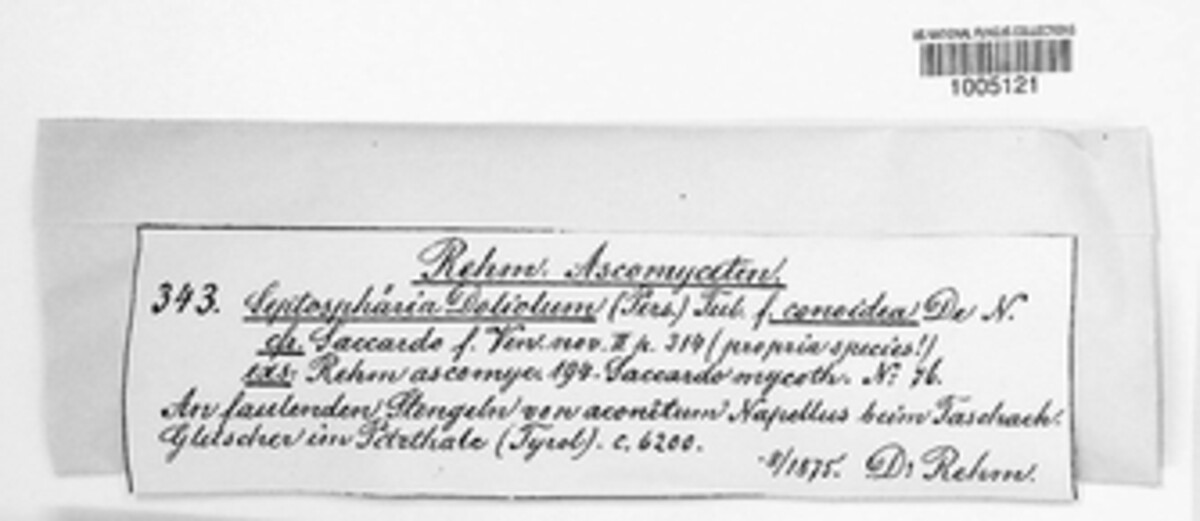 US NATIONAL FUNGUS COLLECTIONS
1005121
Rehm. Ascomyceten.
343. Leptosphäria Doliolum (Pers.) Tul. f. conoidea De N.
cfr. Saccardo f. Ven. nov. II p. 314 (propria species!)
exs. Rehm ascomyc. 194. Saccardo mycoth. No. 76.
An faulenden Stengeln von aconitum Napellus beim Taschach-
Gletscher im Pitzthale (Tyrol). c. 6200.
8/1875. Dr Rehm.